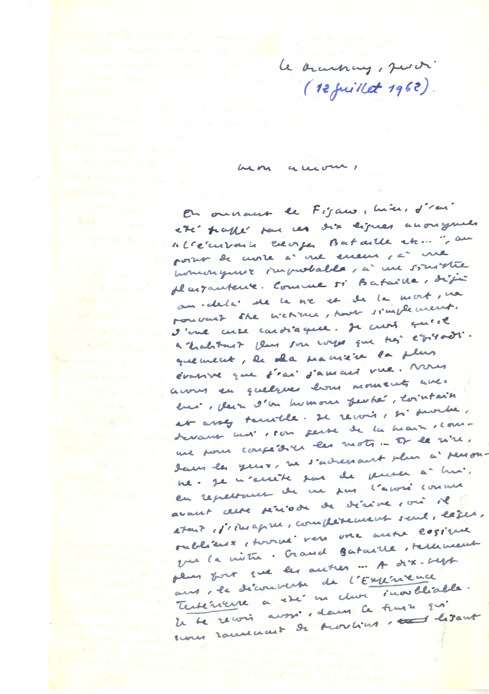 Le , jeudi
(12 Juillet 1962).
mon amour,
En ouvrant le Figaro, hier, j'ai
été frappé par ces dix lignes anonymes
"l'écrivain Georges Bataille etc...", au
point de croire à une erreur, à une
homonymie improbable, à une sinistre
plaisanterie. Comme si Bataille, déjà
au-delà de la vie et de la mort, ne
pouvait être victime, tout simplement,
d'une crise cardiaque. Je crois qu'il
n'habitait plus son corps que très épisodi-
quement, de la manière la plus
évasive que j'aie jamais vue. Nous
avons eu quelques bons moments avec
lui, plein d'un humour, lointain
et assez terrible. Je revois, si proche,
devant moi, son geste de la main, com-
me pour congédier les mots... Et le rire,
dans les yeux, ne s'adressant plus à person-
ne. Je n'arrête pas de penser à lui,
en regrettant de ne pas l'avoir connu
avant cette période de dérive, où il
était, j'imagine, complètement seul, léger,
oublieux, tourné vers une autre logique
que la nôtre. Grand Bataille, tellement
plus fort que les autres... A dix-sept
ans, la découverte de l'Expérience
Intérieure a été un choc inoubliable.
Je te revois aussi, dans le train qui
nous ramenait de Moulins, lisant